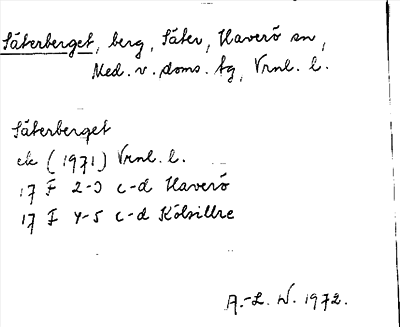 Säterberget, berg, Säter, Haverö sn,
Med. v. doms. tg, Vrnl. l.
Säterberget
ek (1971) Vrnl. l.
17 F 2-3 c-d Haverö
17 F 4-5 c-d Kölsillre
A.-L. W. 1972.